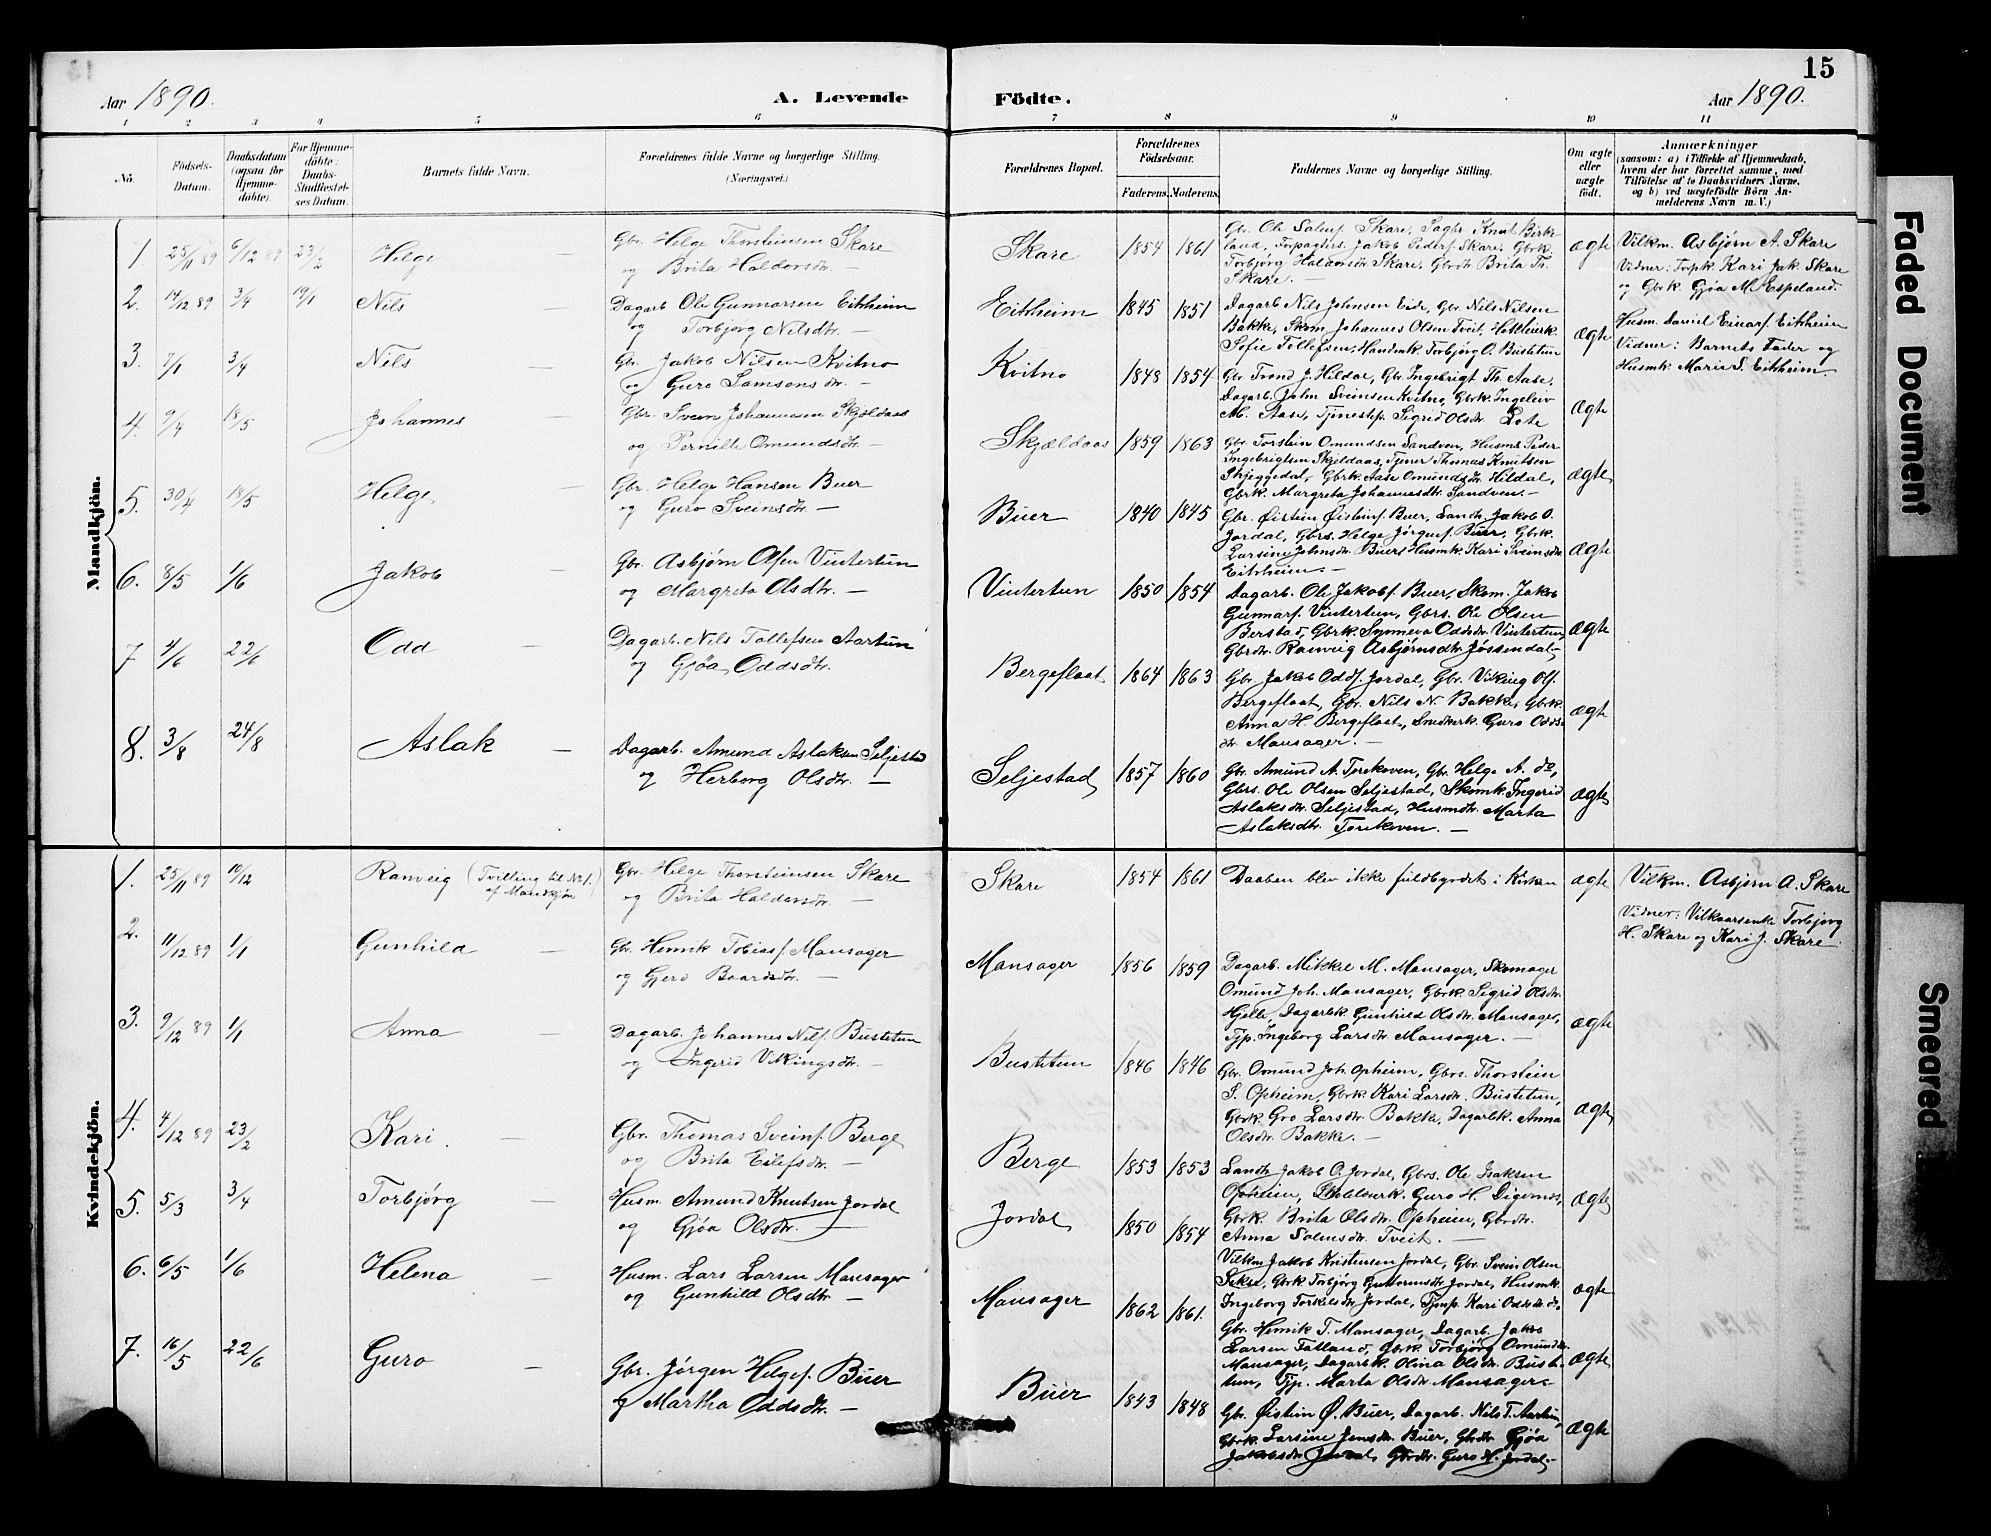 15
Aar 1890.
A. Levende
Födte.
Aar 1890.
1 2 3 4 5 6 7 8 9 10 11
No.
Födsels-
Datum.
Daabsdatum
(ogsaa for
Hjemme-
döbte).
For Hjemme-
döbte:
Daabs-
Stadfæstel-
ses Datum.
Barnets fulde Navn.
Forældrenes fulde Navne og borgerlige Stilling.
(Næringsvei.)
Forældrenes Bopæl.
Forældrenes
Födselsaar.
Faderens. Moderens.
Faddernes Navne og borgerlige Stilling.
Om ægte
eller
uægte
födt.
Anmærkninger
(saasom: a) i Tilfælde af Hjemmedaab,
hvem der har forrettet samme, med
Tilföielse af to Daabsvidners Navne,
og b) ved uægtefödte Börn An-
melderens Navn m. V.)
Mandkjön.
1. 25/11 89 6/12 89 23/2 Helge —
Gbr. Helge Thorsteinsen Skare
og Brita Haldorsdtr. —
Skare 1854 1861
Gbr. Ole Salmf. Skare, Sagbr. Knut Birke-
land, Forpagters. Jakob Pederf. Skare, Gbrk.
Torbjörg Haldorsdtr. Skare, Gbrdtr. Brita Th.
Skare. —
ægte
Vilkm. Asbjørn A. Skare
Vidner: Forpk. Kari Jak. Skare
og Gbrk. Gjøa M. Espeland.
2. 14/12 89 3/4 19/1 Nils —
Dagarb. Ole Gunnarsen Eitrheim
og Torbjørg Nilsdtr. —
Eitrheim 1845 1851
Dagarb. Nils Johnsen Eide, Gbr. Nils Nilsen
Bakke, Skom. Johannes Olsen Tveit,
Sofie Tollefsen, Handmk. Torbjørg O. Bustetun
ægte
Husm. Daniel Einarf. Eitrheim
Vidner: Barnets Fader og
Husmk. Marie S. Eitrheim.
3. 7/1 3/4 Nils —
Gbr. Jakob Nilsen Kvitno
og Guro Samsonsdtr. —
Kvitno 1848 1854
Gbr. Trond J. Hildal, Gbr. Ingebrigt Th. Aase,
Dagarb. John Sveinsen Kvitno, Gbrk. Ingeleiv
M. Aase, Tjenestep. Sigrid Olsdtr. Lote
ægte
4. 9/4 18/5 Johannes —
Gbr. Svein Johannesen Skjeldaas
og Pernille Omundsdtr. —
Skjældaas 1859 1863
Gbr. Torstein Omundsen Sandven, Husm. Peder
Ingebrigtsen Skjeldaas, Tjener Thomas Knutsen
Skjeggedal, Gbrk. Aase Omundsdtr. Hildal,
Gbrk. Margreta Johannesdtr. Sandven. —
ægte
5. 30/4 18/5 Helge —
Gbr. Helge Hansen Buer
og Guro Sveinsdtr. —
Buer 1840 1845
Gbr. Øistein Øisteinf. Buer, Landh. Jakob O.
Jordal, Gbrs. Helge Jørgenf. Buer, Gbrk.
Larsine Johnsdtr. Buer, Husmk. Kari Sveinsdtr.
Eitrheim. —
ægte
6. 8/5 1/6 Jakob —
Gbr. Asbjørn Olsen Vintertun
og Margreta Olsdtr. —
Vintertun 1850 1854
Dagarb. Ole Jakobf. Buer, Skom. Jakob
Gunnarf. Vintertun, Gbrs. Ole Olsen
Berstad, Gbrk. Synneva Oddsdtr. Vintertun,
Gbrdtr. Ranveig Asbjørnsdtr. Jøssendal.
ægte
7 4/6 22/6 Odd —
Dagarb. Nils Tollefsen Aartun
og Gjøa Oddsdtr. —
Bergeflaat 1864 1863
Gbr. Jakob Oddf. Jordal, Gbr. Viking Olf.
Bergeflaat, Gbr. Nils N. Bakke, Gbrk.
Anna H. Bergeflaat, Guro Odds-
dtr. Mansager. —
ægte
8. 3/8 24/8 Aslak —
Dagarb. Amund Aslaksen Seljestad
og Herborg Olsdtr. —
Seljestad 1857 1860
Gbr. Amund A. Jorekoven, Gbr. Helge A. do,
Gbrs. Ole Olsen Seljestad, Skomk. Ingerid
Aslaksdtr. Seljestad, Husmdtr. Marta
Aslaksdtr. Jorekoven. —
ægte
Kvindekjön.
1. 25/11 89 10/12 Ranveig (Tvilling til No 1.
af Mandkjøn)
Gbr. Helge Thorsteinsen Skare
og Brita Haldorsdtr. —
Skare 1854 1861
Daaben blev ikke fuldbyrdet i Kirken
ægte
Vilkm. Asbjørn A. Skare
Vidner: Vilkaarsenke Torbjørg
H. Skare og Kari J. Skare.
2. 11/12 89 1/1 Gunhild —
Gbr. Henrik Tobiasf. Mansager
og Gjero Baardsdtr. —
Mansager 1856 1859
Dagarb. Mikkel M. Mansager, Skomager
Omund Joh. Mansager, Gbrk. Sigrid Olsdtr.
Hjelle, Dagarbk. Gunhild Olsdtr. Mansager,
Tjp. Ingeborg Larsdtr. Mansager. —
ægte
3. 9/12 89 1/1 Anna —
Dagarb. Johannes Nilf. Bustetun
og Ingerid Vikingsdtr. —
Bustetun 1846 1846
Gbr. Omund Joh. Opheim, Gbrs. Thorstein
S. Opheim, Gbrk. Kari Larsdtr. Bustetun,
Gbrk. Gro Larsdtr. Bakke, Dagarbk. Anna
Olsdtr. Bakke. —
ægte
4. 4/12 89 23/2 Kari. —
Gbr. Thomas Sveinf. Berge
og Brita Eilefsdtr. —
Berge 1853 1853
Landh. Jakob O. Jordal, Gbrs. Ole Isaksen
Opheim, Guro H. Digernes,
Gbrk. Brita Olsdtr. Opheim, Gbrdtr.
Anna Salmsdtr. Tveit. —
ægte
5. 5/3 3/4 Torbjørg —
Husm. Amund Knutsen Jordal
og Gjøa Olsdtr. —
Jordal 1850 1854
Vilkm. Jakob Kristensen Jordal, Gbr. Svein Olsen
Sekse, Gbrk. Torbjørg Guttormsdtr. Jordal, Husmk.
Ingeborg Torkelsdtr. Jordal, Tjmp. Kari Oddsdtr. do.
ægte
6. 6/5 1/6 Helena —
Husm. Lars Larsen Mansager
og Gunhild Olsdtr. —
Mansager 1862 1861.
Gbr. Henrik T. Mansager, Dagarb. Jakob
Larsen Folland, Gbrk. Torbjörg Omundsdtr.
Mansager, Dagarbk. Olina Olsdtr. Buste-
tun, Tjp. Marta Olsdtr. Mansager. —
ægte
7. 16/5 22/6 Guro —
Gbr. Jørgen Helgef. Buer
og Martha Oddsdtr. —
Buer 1843 1848
Gbr. Øistein Ø. Buer, Dagarb. Nils T. Aartun,
Gbrk. Larsine Jonsdtr. Buer, Gbrdtr. Gjøa
Jakobsdtr. Jordal, Gbrdtr. Guro H. Jordal. —
ægte
Faded Document
Smeared